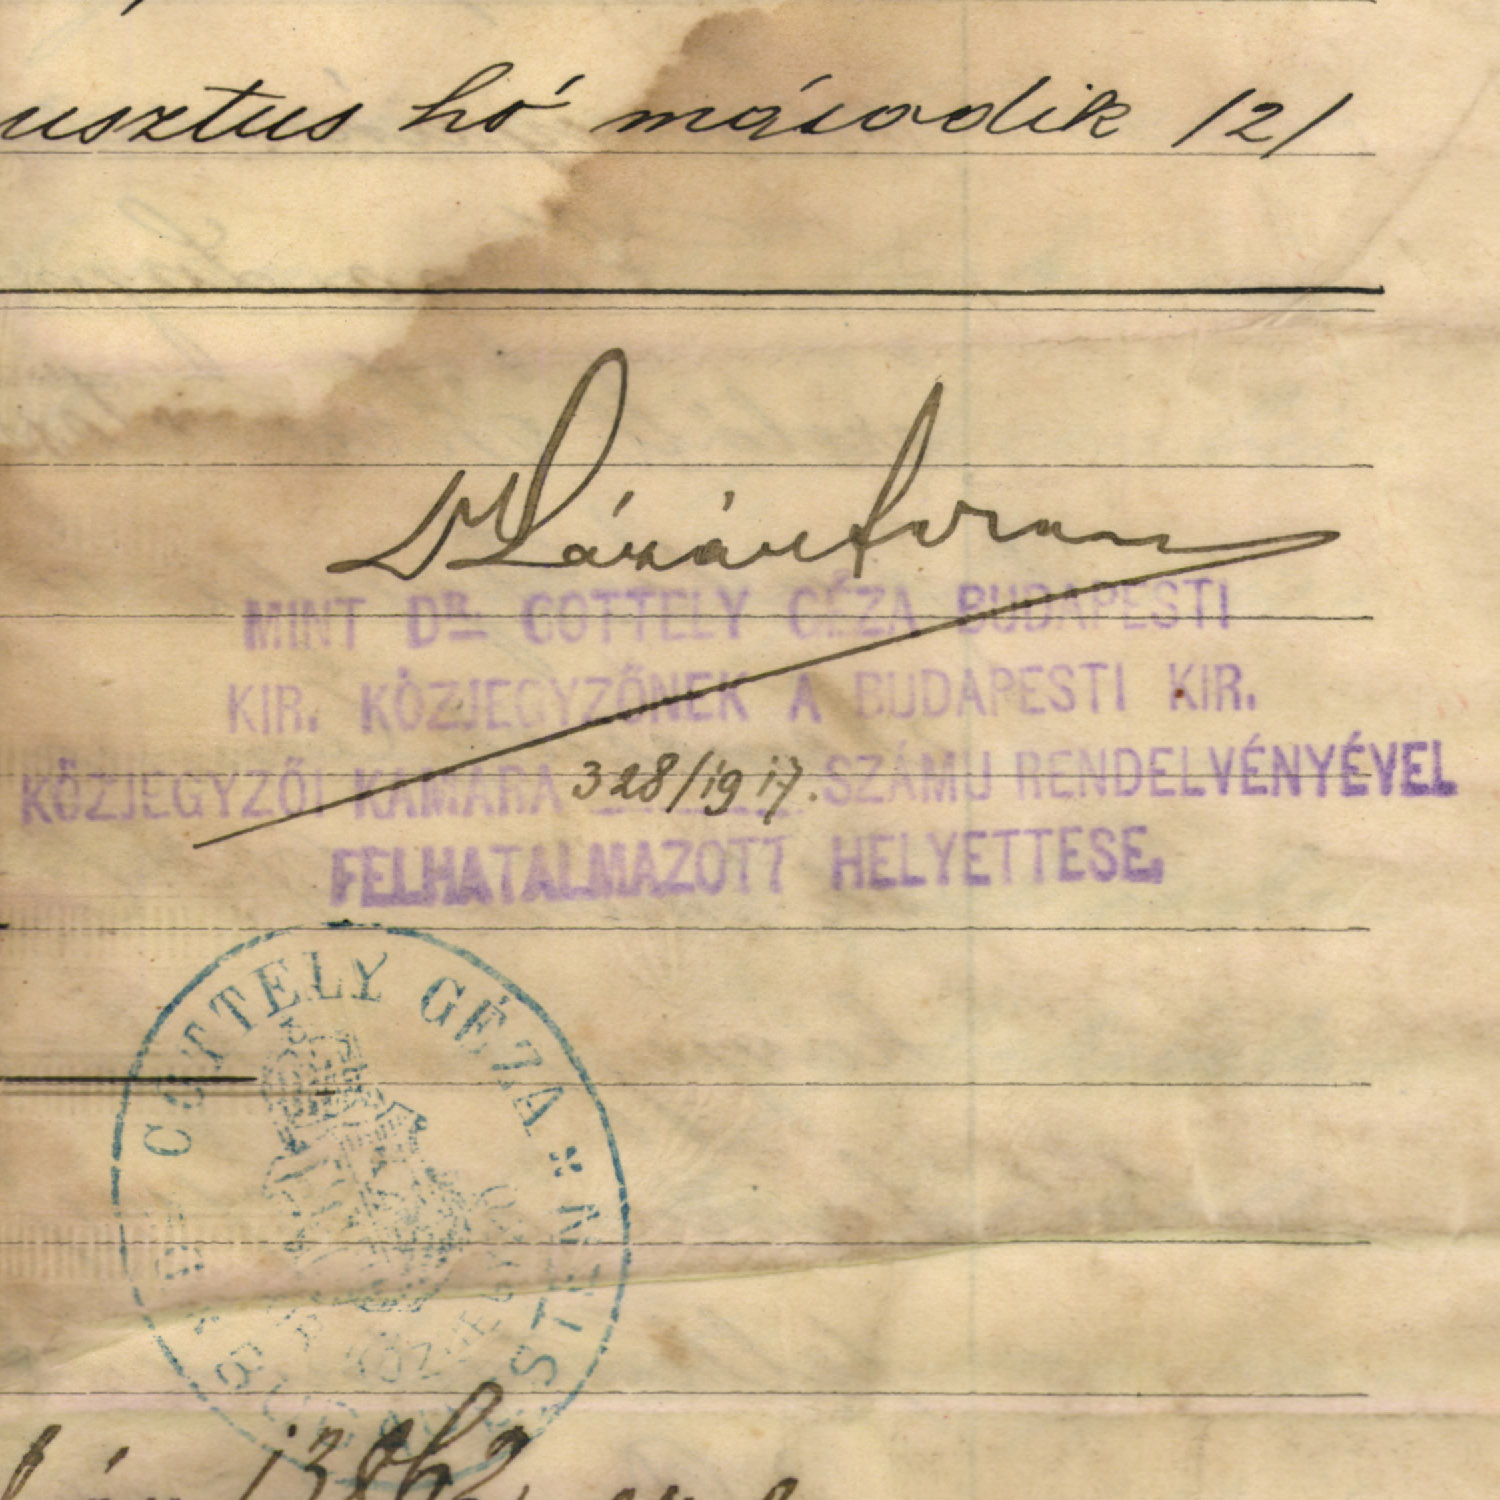 usztus hó második /2/
Dr Lázár Ferenc
MINT DR. GOTTELY GÉZA BUDAPESTI
KIR. KÖZJEGYZŐNEK A BUDAPESTI KIR.
KÖZJEGYZŐI KAMARA 328/1917. SZÁMU RENDELVÉNYÉVEL
FELHATALMAZOTT HELYETTESE.
GOTTELY GÉZA
BUDAPESTEN
KIR. KÖZJEGYZŐ